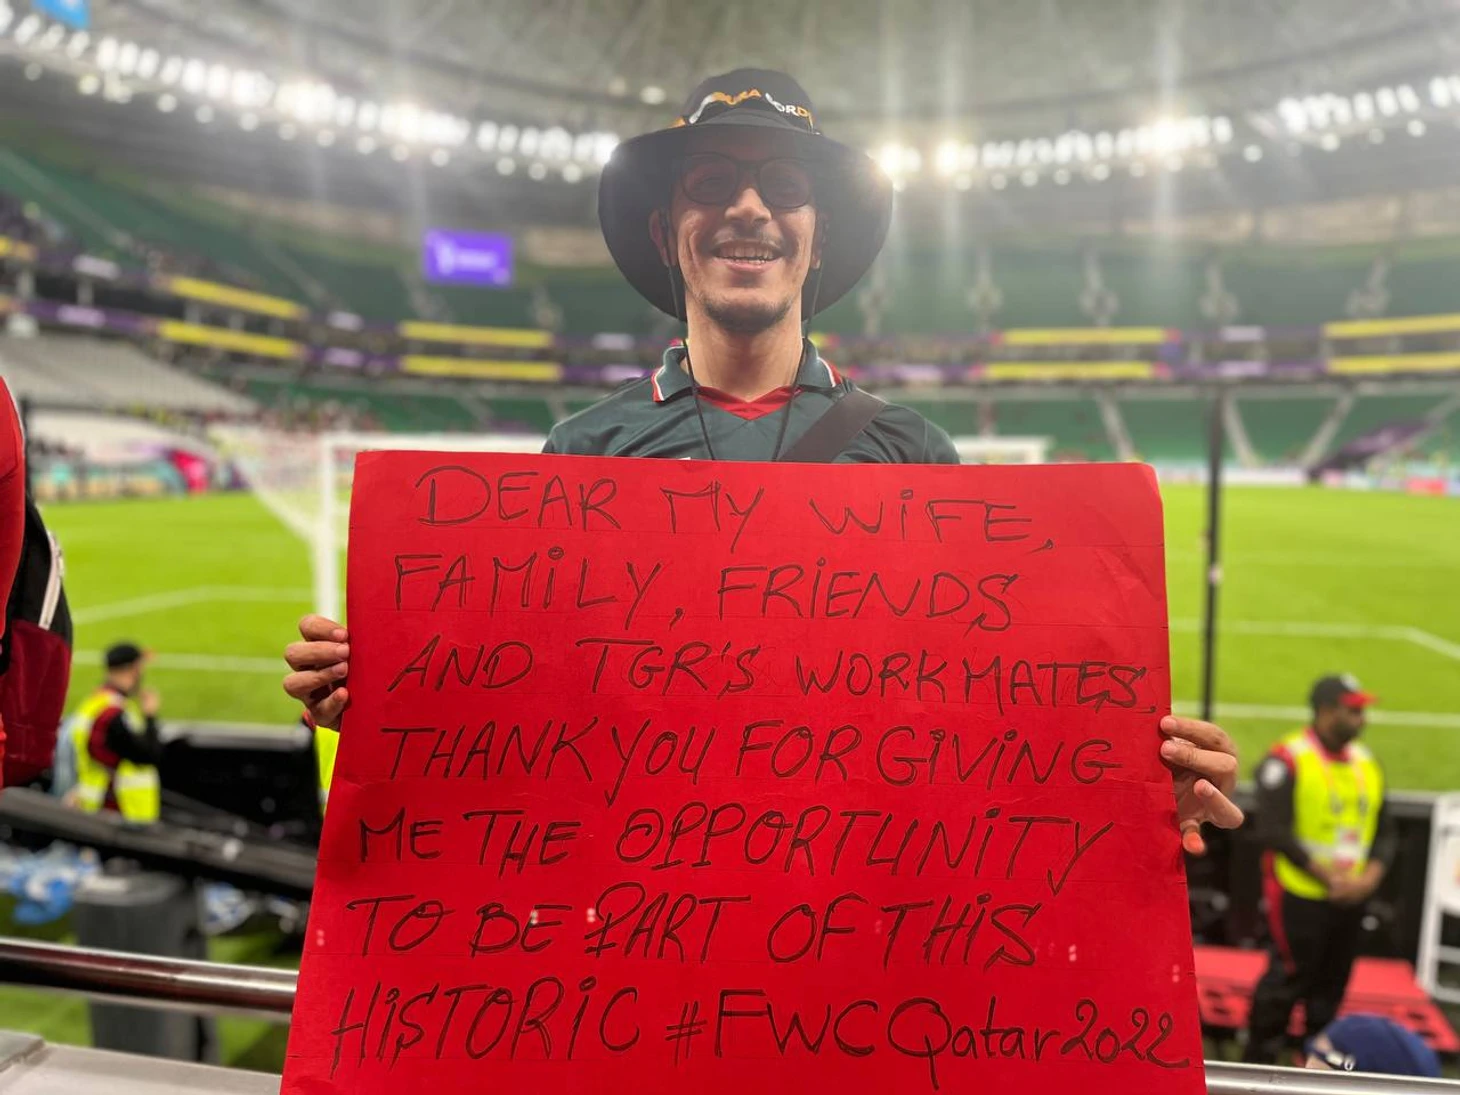 DEAR MY WiFE,
FAMiLY, FRiENDS
AND TGR'S WORKMATES,
THANK YOU FOR GiViNG
ME THE OPPORTUNiTY
TO BE PART OF THiS
HiSTORiC #FWCQatar2022